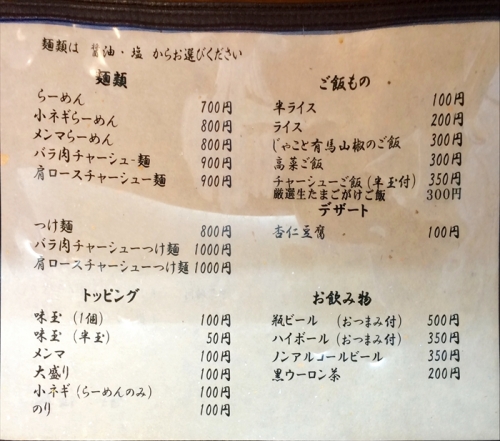 麺類は 醤油・塩 からお選びください
麺類
らーめん 700円
小ネギらーめん 800円
メンマらーめん 800円
バラ肉チャーシュー麺 900円
肩ロースチャーシュー麺 900円
つけ麺 800円
バラ肉チャーシューつけ麺 1000円
肩ロースチャーシューつけ麺 1000円
トッピング
味玉（1個） 100円
味玉（半玉） 50円
メンマ 100円
大盛り 100円
小ネギ（らーめんのみ） 100円
のり 100円
ご飯もの
半ライス 100円
ライス 200円
じゃこと有馬山椒のご飯 300円
高菜ご飯 300円
チャーシューご飯（半玉付） 350円
厳選生たまごがけご飯 300円
デザート
杏仁豆腐 100円
お飲み物
瓶ビール （おつまみ付） 500円
ハイボール（おつまみ付） 350円
ノンアルコールビール 350円
黒ウーロン茶 200円